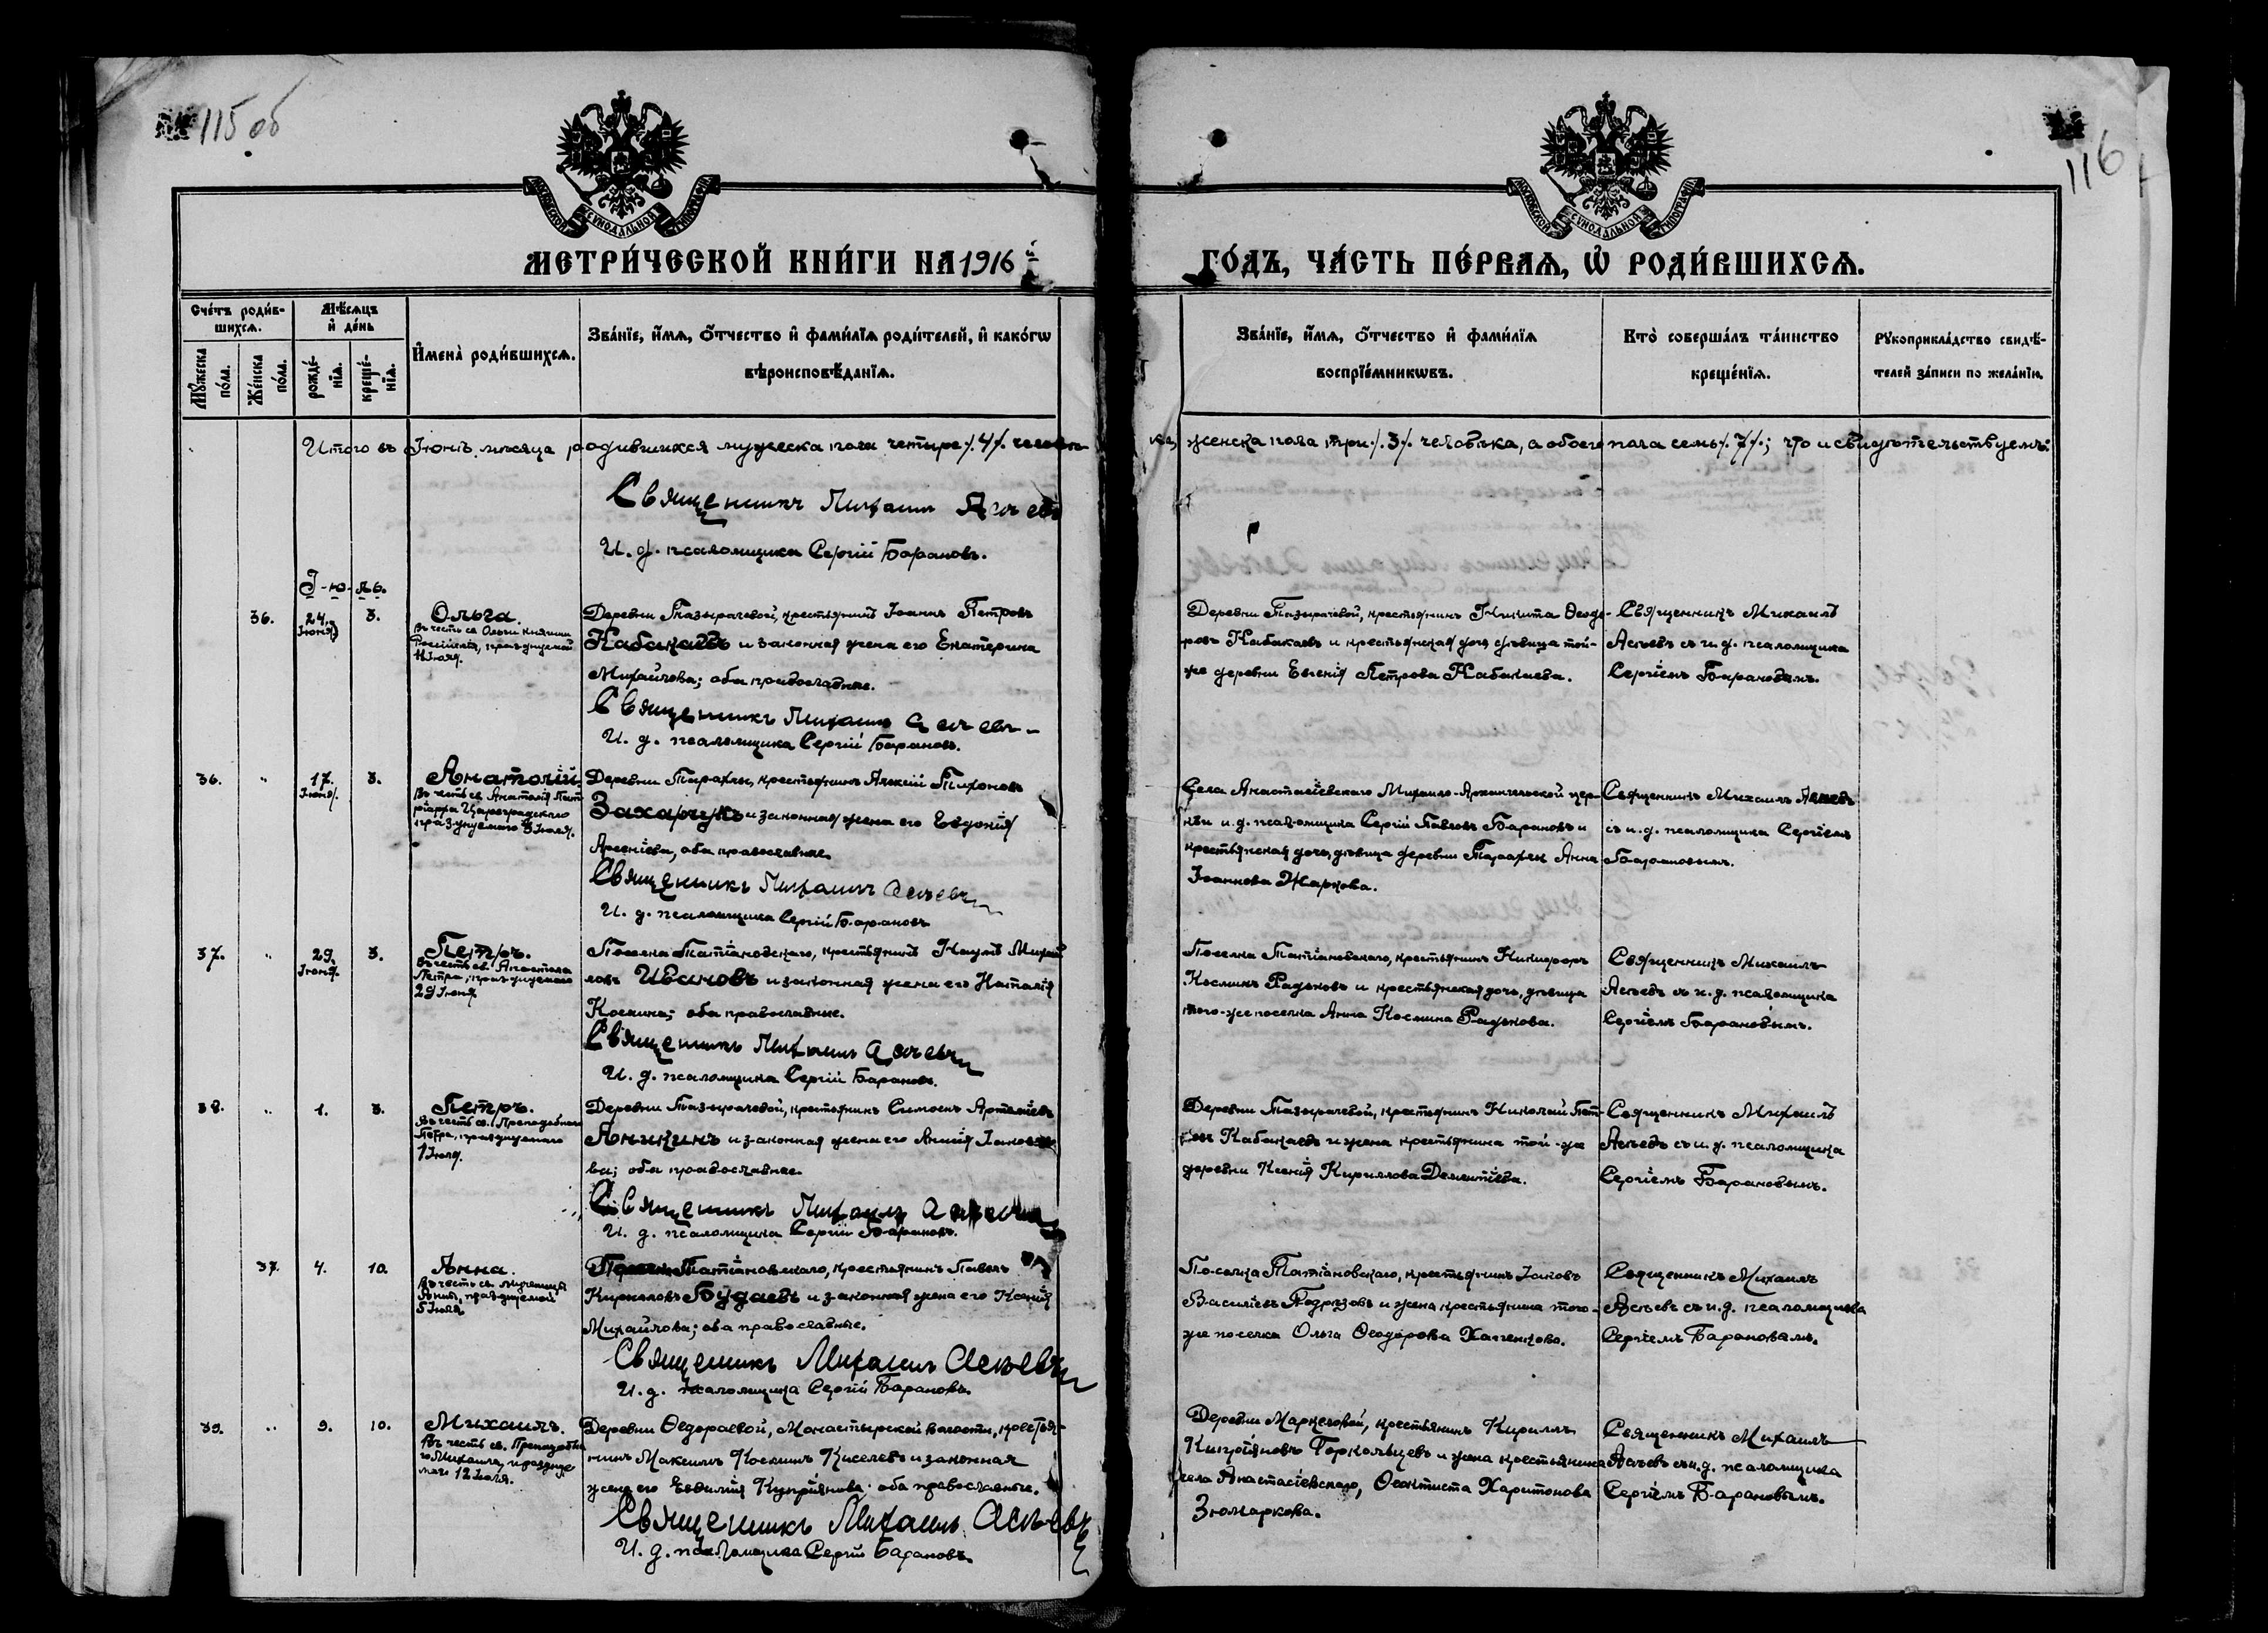 115 об
116
МОСКОВСКОЙ СѴНОДАЛЬНОЙ ТИПОГРАФІИ
МОСКОВСКОЙ СѴНОДАЛЬНОЙ ТИПОГРАФІИ
МЕТРИ́ЧЕСКОЙ КНИ́ГИ НА 1916 й
ГО́ДЪ, ЧА́СТЬ ПЕ́РВАѦ, Ѡ РОДИ́ВШИХСѦ.
Сче́тъ роди́в-
шихсѧ.
Мѣ́сѧцъ
и҆ де́нь
Мꙋ́жеска
по́ла.
Же́нска
по́ла.
рожде́-
нїѧ.
креще́-
нїѧ.
И҆мена̀ роди́вшихсѧ.
Зва́нїе, и҆́мѧ, ѻ҆́тчество и҆ фами́лїѧ роди́телей, и҆ како́гѡ
вѣроисповѣ́данїѧ.
Зва́нїе, и҆́мѧ, ѻ҆́тчество и҆ фами́лїѧ
воспрїе́мникѡвъ.
Кто̀ соверша́лъ та́инство
креще́нїѧ.
Рꙋкоприкла́дство свидѣ́-
телей за́писи по жела́нїю.
Итого въ Іюнѣ мѣсяца родившихся мужеска пола четыре ⁒ 4 ⁒ человѣ-
ка, женска пола три ⁒ 3 ⁒ человѣка, а обоего пола семь ⁒ 7 ⁒; что и свидѣтельствуемъ:
Священникъ Михаилъ Асѣевъ
И. д. псаломщика Сергій Барановъ.
І-ю-ль.
36.
24.
Іюня)
3.
Ольга.
Въ честь св. Ольги княгини
Россійскія, празднуемой
11 Іюля.
Деревни Тазырачевой, крестьянинъ Іоаннъ Петровъ
Кабакаевъ и законная жена его Екатерина
Михайлова; оба православные.
Священникъ Михаилъ Асѣевъ
И. д. псаломщика Сергій Барановъ.
Деревни Тазырачевой, крестьянинъ Никита Ѳеодо-
ровъ Кабакаевъ и крестьянская дочь дѣвица той-
же деревни Евгенія Петрова Кабакаева.
Священникъ Михаилъ
Асѣевъ съ и. д. псаломщика
Сергіемъ Барановымъ.
36.
"
17.
Іюня).
3.
Анатолій.
Въ честь св. Анатолія Пат-
ріарха Цареградскаго
празднуемаго 3 Іюля.
крестьянинъ Алексій Тихоновъ
Захарчукъ и законная жена его Евдокія
Арсеніева, оба православные.
Священникъ Михаилъ Асѣевъ
И. д. псаломщика Сергій Барановъ
Села Анастасіевскаго Михаило-Архангельской цер-
кви и. д. псаломщика Сергій Павловъ Барановъ и
крестьянская дочь, дѣвица деревни Анна
Іоаннова Жаркова.
Священникъ Михаилъ Асѣевъ
съ и. д. псаломщика Сергіемъ
Барановымъ.
37.
"
29.
Іюня.
3.
Петръ.
Въ честь св. Апостола
Петра, празднуемаго
29 Іюня
Поселка Татіановскаго, крестьянинъ Наумъ Михай
ловъ Ивановъ и законная жена его Наталія
Космина; оба православные.
Священникъ Михаилъ Асѣевъ
И. д. псаломщика Сергій Барановъ.
Поселка Татіановскаго, крестьянинъ Никифоръ
Косминъ Радьковъ и крестьянская дочь, дѣвица
того-же поселка Анна Космина Радькова.
Священникъ Михаилъ
Асѣевъ съ и. д. псаломщика
Сергіемъ Барановымъ.
38.
"
1.
3.
Петръ.
Въ честь св. Преподобнаго
Петра, празднуемаго
1 Іюля.
Деревни Тазырачевой, крестьянинъ Симеонъ Артеміевъ
Аникинъ и законная жена его Анисія Іаковле
ва; оба православные.
Священникъ Михаилъ Асѣевъ
И. д. псаломщика Сергій Барановъ.
Деревни Тазырачевой, крестьянинъ Николай Пет-
ровъ Кабакаевъ и жена крестьянина той-же
деревни Ксенія Кириллова Дементіева.
Священникъ Михаилъ
Асѣевъ съ и. д. псаломщика
Сергіемъ Барановымъ.
37.
4.
10.
Анна.
Въ честь св. мученицы
Анны, празднуемой
5 Іюля
Поселка Татіановскаго, крестьянинъ Павелъ
Кирилловъ Будаевъ и законная жена его Ксенія
Михайлова; оба православные.
Священникъ Михаилъ Асѣевъ
И. д. псаломщика Сергій Барановъ.
Поселка Татіановскаго, крестьянинъ Іаковъ
Василіевъ Подрѣзовъ и жена крестьянина того-
же поселка Ольга Ѳеодорова
Священникъ Михаилъ
Асѣевъ съ и. д. псаломщика
Сергіемъ Барановымъ.
39.
"
9.
10.
Михаилъ.
Въ честь св. Преподобна
го Михаила, праздну
маго 12 Іюля.
Деревни Ѳедораевой, Монастырской волости, крестья-
нинъ Максимъ Косминъ Киселевъ и законная
жена его Евфимія Купріянова; оба православные.
Священникъ Михаилъ Асѣевъ
И. д. псаломщика Сергій Барановъ.
Деревни Маркеловой, крестьянинъ Кириллъ
Кипріановъ и жена крестьянина
села Анастасіевскаго, Ѳеоктиста Харитонова
Зюмаркова.
Священникъ Михаилъ
Асѣевъ съ и. д. псаломщика
Сергіемъ Барановымъ.